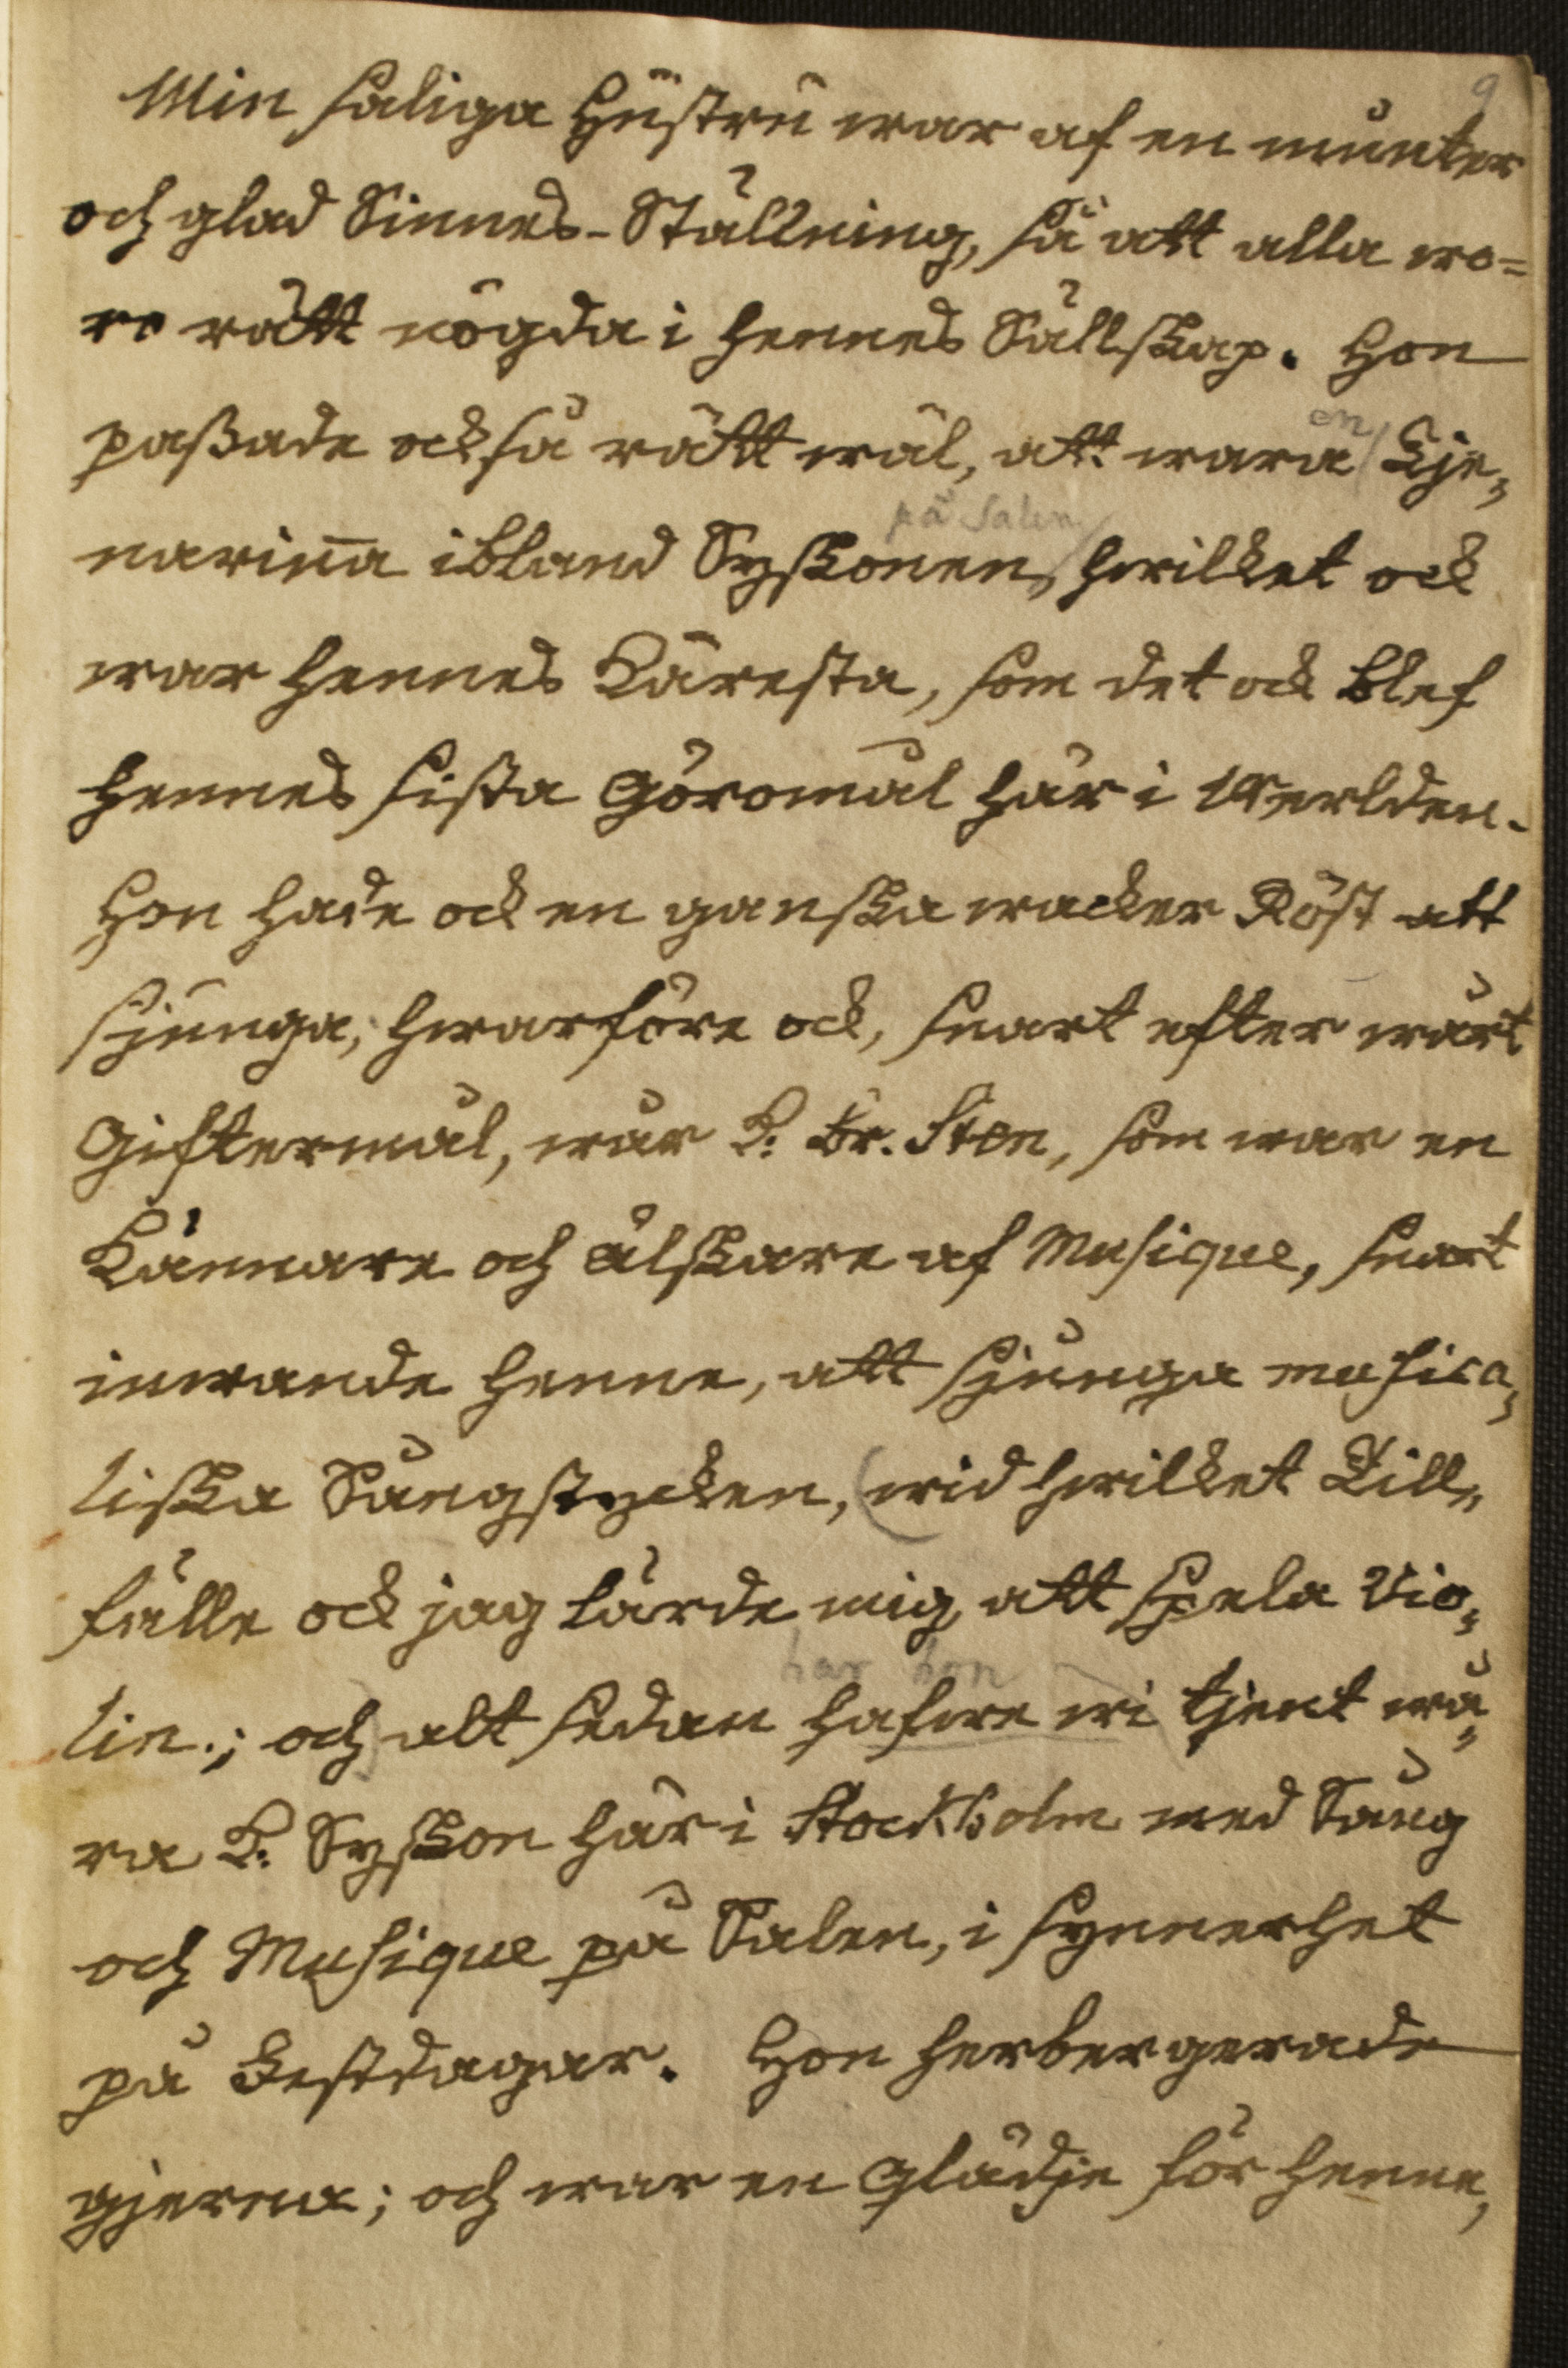 9
Min saliga Hustru war af en munter
och glad Sinnes-Ställning, så att alla wo=
ro rätt nögda i hennes Sällskap. Hon
en
paßade också rätt wäl, att wara Tje„
på Salen
narinna ibland Syskonen, hwilket ock
war hennes Käresta, som det ock blef
hennes sista Göromål här i Werlden.
Hon hade ock en ganska wacker Röst att
sjunga, hwarföre ock, snart efter wårt
Giftermål, wår L. Br. Sten, som war en
Kännare och älskare af Musique, snart
inwande henne, att sjunga musica„
liska Sångstycken, (wid hwilket Till„
fälle ock jag lärde mig, att spela Vio„
har hon
lin.; och alt sedan hafwe wi tjent wå„
ra L. Syskon här i Stockholm med Sång
och Musique på Salen, i synnerhet
på Festdagar. Hon herbergerade
gjerna; och war en Glädje för henne,